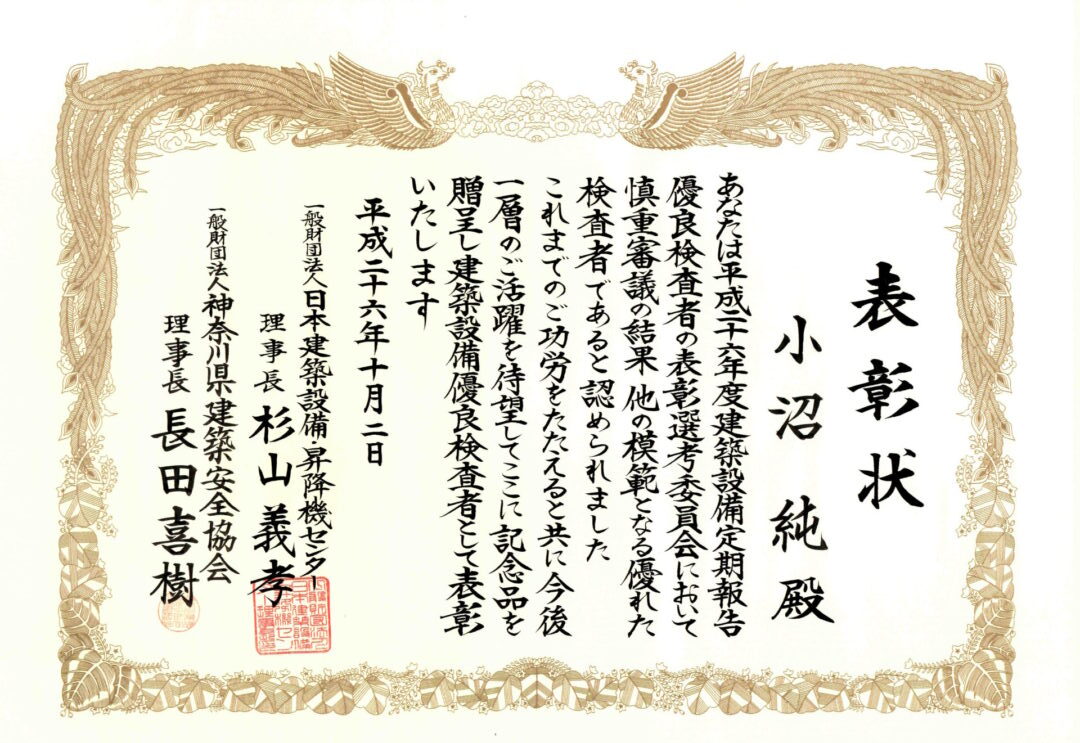 表彰状
小沼 純 殿
あなたは平成二十六年度建築設備定期報告
優良検査者の表彰選考委員会において
慎重審議の結果 他の模範となる優れた
検査者であると認められました
これまでのご功労をたたえると共に今後
一層のご活躍を待望してここに記念品を
贈呈し建築設備優良検査者として表彰
いたします
平成二十六年十月二日
一般財団法人日本建築設備・昇降機センター
理事長 杉山義孝
一般財団法人神奈川県建築安全協会
理事長 長田喜樹